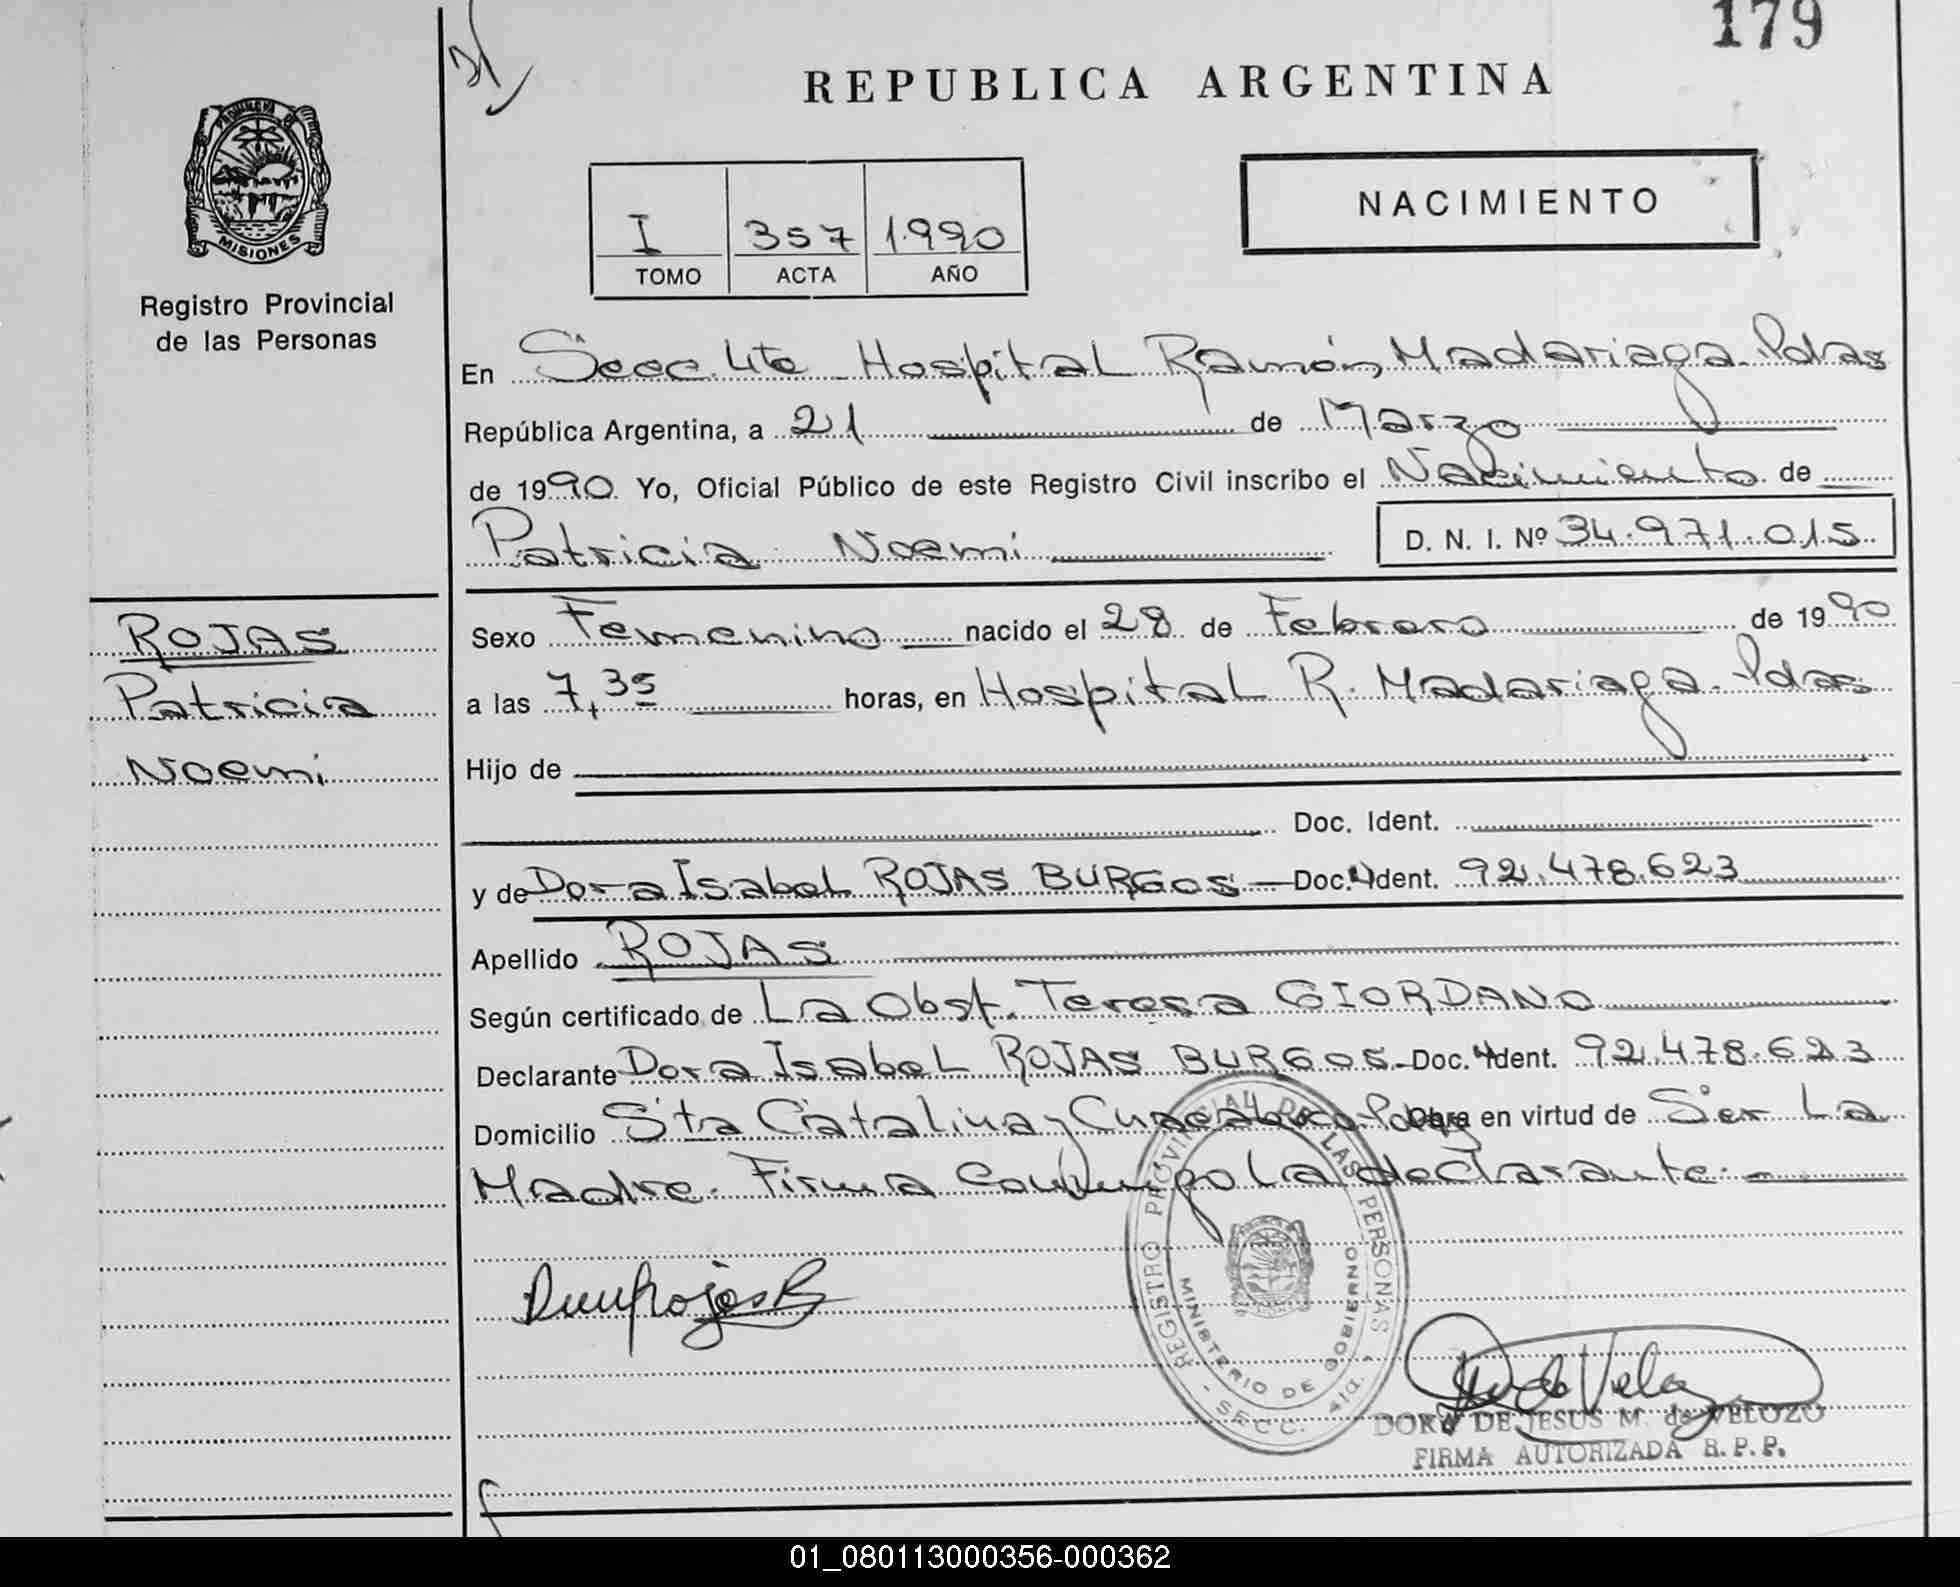 179
REPUBLICA ARGENTINA
PROVINCIA DE
MISIONES
Registro Provincial
de las Personas
I 357 1.990
TOMO ACTA AÑO
NACIMIENTO
En Secc. 4ta Hospital Ramón Madariaga. Pdas
República Argentina, a 21 de Marzo
de 1990 Yo, Oficial Público de este Registro Civil inscribo el Nacimiento de
Patricia Noemi D. N. I. Nº 34.971.015
ROJAS
Patricia
Noemi
Sexo Femenino nacido el 28 de Febrero de 1990
a las 7,35 horas, en Hospital R. Madariaga. Pdas
Hijo de
Doc. Ident.
y de Dora Isabel ROJAS BURGOS Doc. Ident. 92.478.623
Apellido ROJAS
Según certificado de La Obst. Teresa GIORDANO
Declarante Dora Isabel ROJAS BURGOS Doc. Ident. 92.478.623
Domicilio Sta Catalina y Pdas en virtud de Ser La
Madre. Firma Conmigo La declarante.
REGISTRO PROVINCIAL DE LAS PERSONAS
MINISTERIO DE GOBIERNO
- SECC. 4ta. -
DORA DE JESUS M. de VELOZO
FIRMA AUTORIZADA R.P.P.
01_080113000356-000362